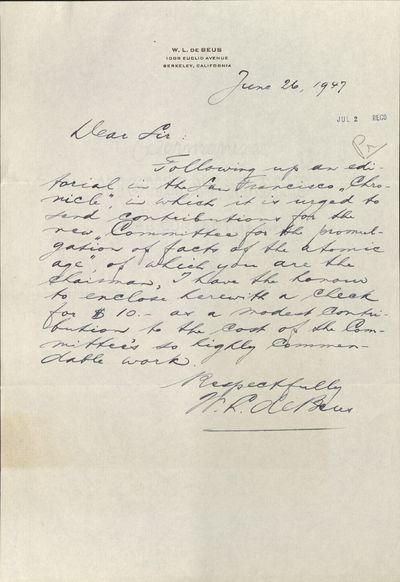 W. L. DE BEUS
1098 EUCLID AVENUE
BERKELEY, CALIFORNIA
June 26, 1947
JUL 2 RECD
Dear Sir:
Following up an edi-
torial in the San Francisco „Chro-
nicle", in which it is urged to
send contributions for the
new „Committee for the promul-
gation of facts of the atomic
age", of which you are the
Chairman, I have the honour
to enclose herewith a check
for $ 10.- as a modest contri-
bution to the cost of the Com-
mittee's so highly commen-
dable work.
Respectfully
W. L. de Beus